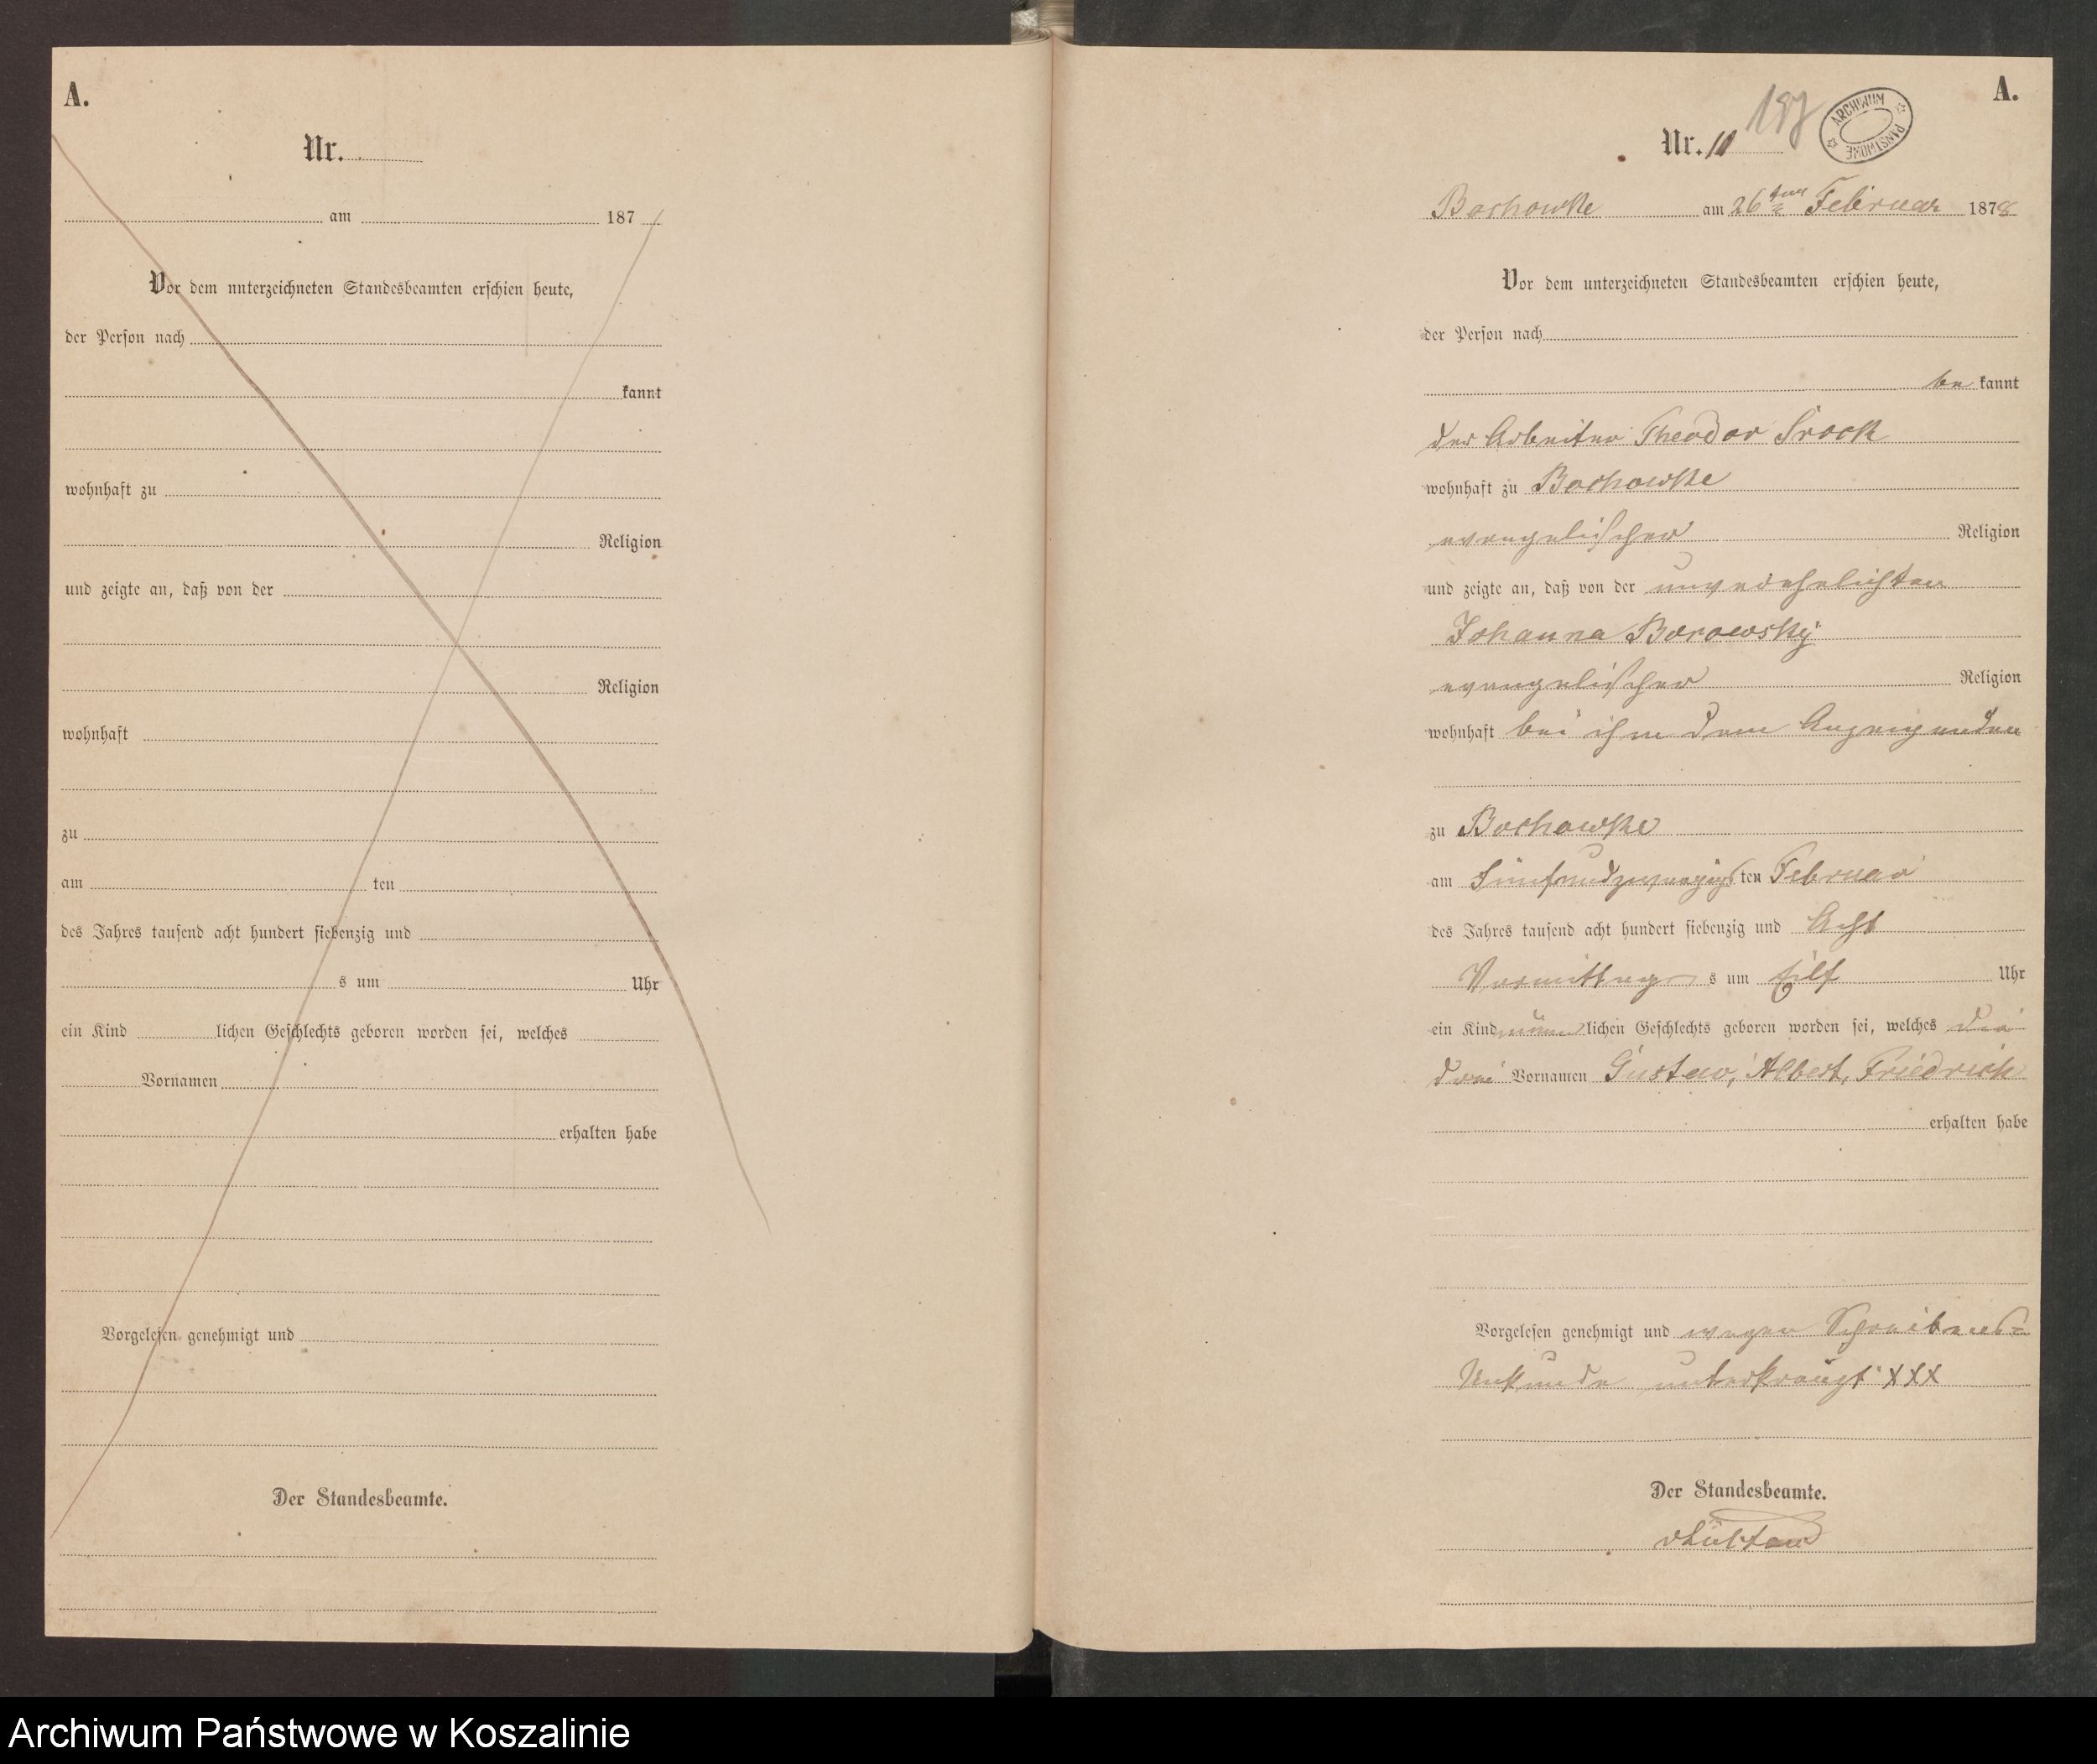 A.
Nr.
am 187
Vor dem unterzeichneten Standesbeamten erschien heute,
der Person nach
kannt
wohnhaft zu
Religion
und zeigte an, daß von der
Religion
wohnhaft
zu
am ten
des Jahres tausend acht hundert siebenzig und
s um Uhr
ein Kind lichen Geschlechts geboren worden sei, welches
Vornamen
erhalten habe
Vorgelesen genehmigt und
Der Standesbeamte.
A.
197
ARCHIWUM PAŃSTWOWE
Nr. 10
Bochowke am 26ten Februar 1878
Vor dem unterzeichneten Standesbeamten erschien heute,
der Person nach
be kannt
der Arbeiter Theodor Srock
wohnhaft zu Bochowke
evangelischer Religion
und zeigte an, daß von der unverehelichten
Johanna Borowsky
evangelischer Religion
wohnhaft bei ihm dem Anzeigenden
zu Bochowke
am Fünfundzwanzigsten Februar
des Jahres tausend acht hundert siebenzig und Acht
Vormittags um Eilf Uhr
ein Kind männlichen Geschlechts geboren worden sei, welches die
drei Vornamen Gustav, Albert, Friedrich
erhalten habe
Vorgelesen genehmigt und wegen Schreibens-
Unkunde unterkreuzt XXX
Der Standesbeamte.
Archiwum Państwowe w Koszalinie